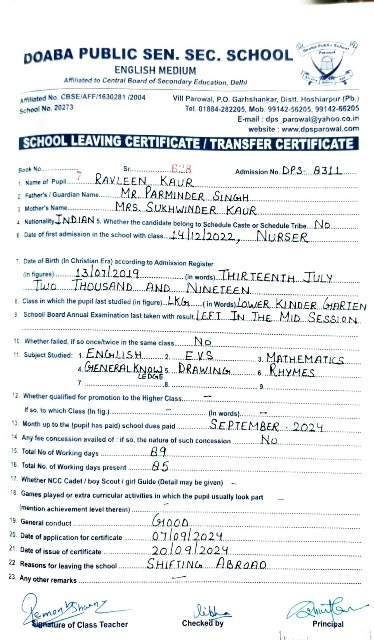 DOABA PUBLIC SEN. SEC. SCHOOL
ENGLISH MEDIUM
Affiliated to Central Board of Secondary Education, Delhi
Affiliated No. CBSE/AFF/1630281 /2004
School No. 20273
Vill Parowal, P.O. Garhshankar, Distt. Hoshiarpur (Pb.)
Tel. 01884-282205, Mob. 99142-56205, 99142-56205
E-mail : dps_parowal@yahoo.co.in
website : www.dpsparowal.com
SCHOOL LEAVING CERTIFICATE / TRANSFER CERTIFICATE
Book No. 7 Sr. 628 Admission No. DPS- 8311
1. Name of Pupil RAVLEEN KAUR
2. Father's / Guardian Name MR. PARMINDER SINGH
3. Mother's Name MRS. SUKHWINDER KAUR
4. Nationality INDIAN 5. Whether the candidate belong to Schedule Caste or Schedule Tribe. NO
6. Date of first admission in the school with class 19/12/2022, NURSER
7. Date of Birth (In Christian Era) according to Admission Register
(in figures) 13/07/2019 (in words) THIRTEENTH JULY
TWO THOUSAND AND NINETEEN
8. Class in which the pupil last studied (in figure) LKG (in Words) LOWER KINDER GARTEN
9. School Board Annual Examination last taken with result LEFT IN THE MID SESSION
10. Whether failed, if so once/twice in the same class NO
11. Subject Studied : 1. ENGLISH 2. EVS 3. MATHEMATICS
4. GENERAL KNOWLEDGE 5. DRAWING 6. RHYMES
7. 8. 9.
12. Whether qualified for promotion to the Higher Class. –
if so, to which Class (in fig.) – (In words) –
13. Month up to the (pupil has paid) school dues paid SEPTEMBER - 2024
14. Any fee concession availed of : if so, the nature of such concession NO
15. Total No. of Working days 89
16. Total No. of Working days present 85
17. Whether NCC Cadet / boy Scout / girl Guide (Detail may be given) –
18. Games played or extra curricular activities in which the pupil usually look part –
(mention achievement level therein) –
19. General conduct GOOD
20. Date of application for certificate 07/09/2024
21. Date of issue of certificate 20/09/2024
22. Reasons for leaving the school SHIFTING ABROAD
23. Any other remarks –
Signature of Class Teacher Checked by Principal